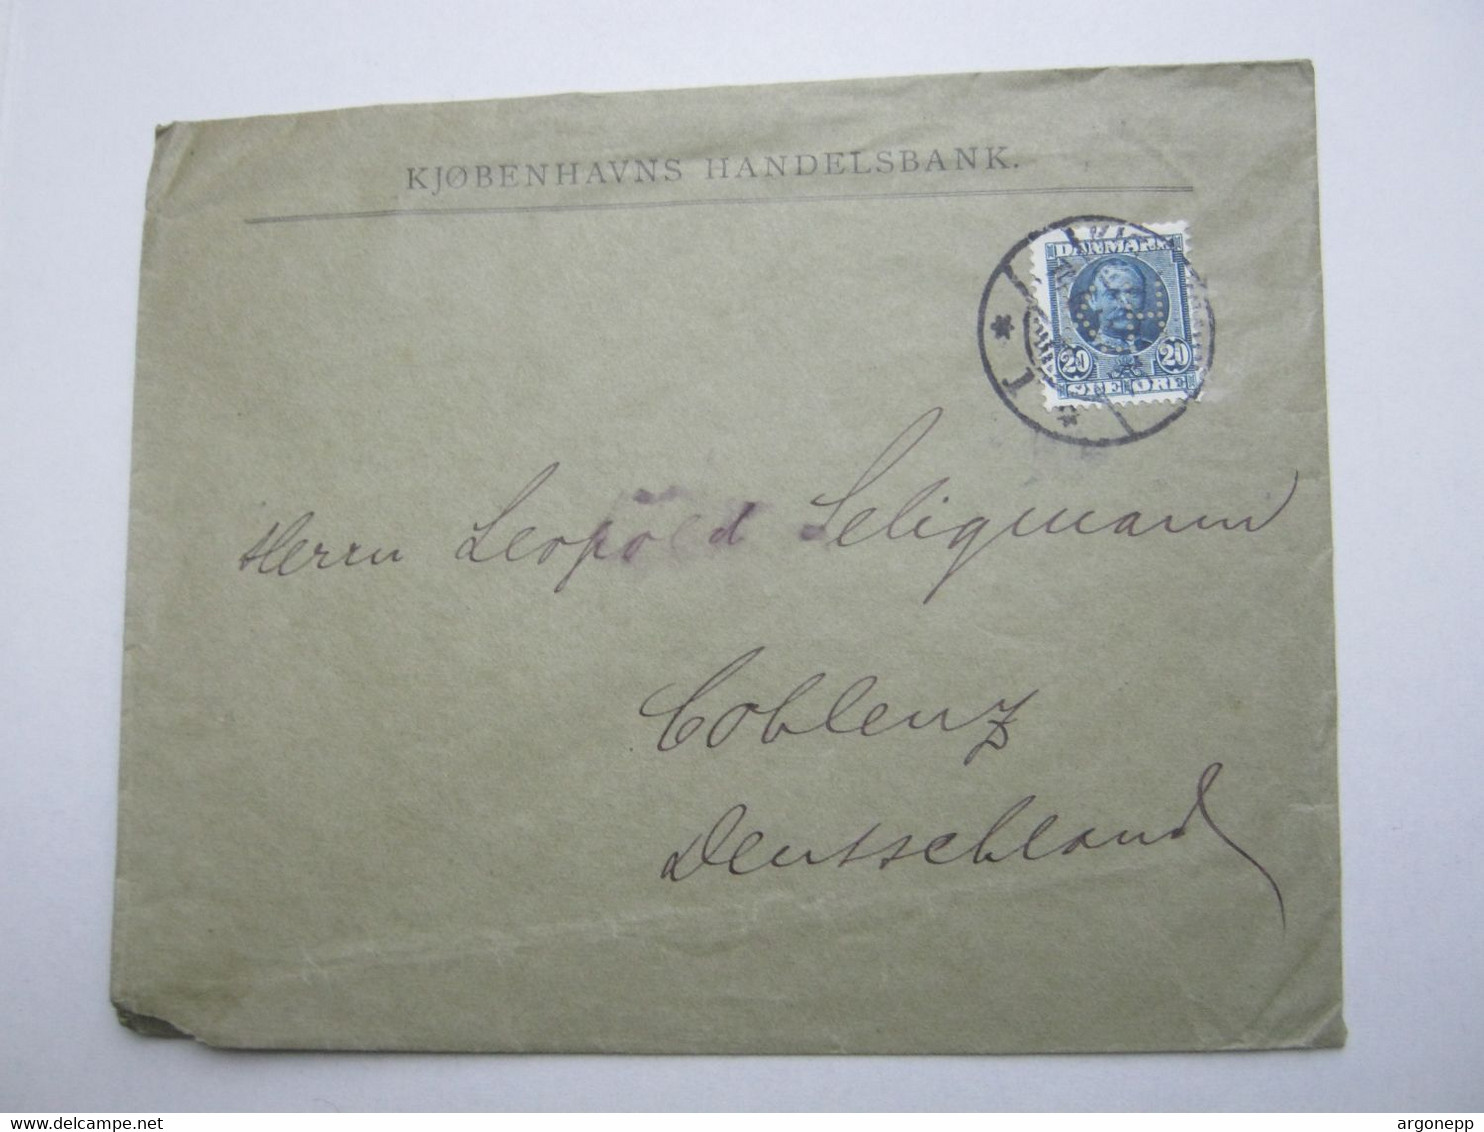 KJØBENHAVNS HANDELSBANK.
DANMARK
20 20
ØRE ØRE
1
Herrn Leopold Seligmann
Coblenz
Deutschland
delcampe.net
argonepp